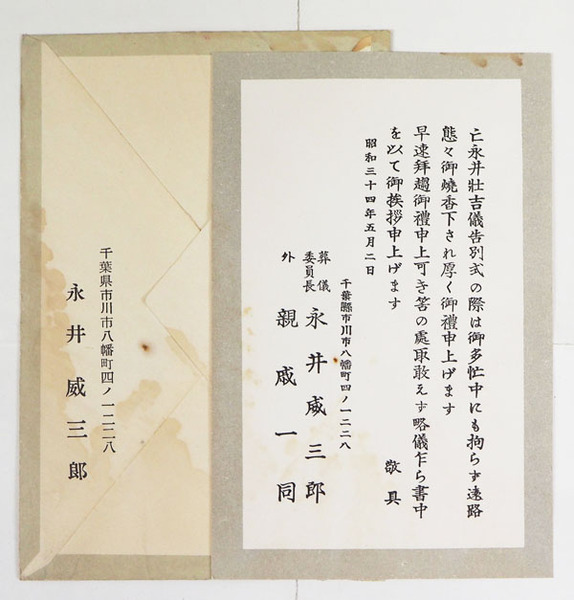 亡永井壯吉儀告別式の際は御多忙中にも拘らず遠路
態々御燒香下され厚く御禮申上げます
早速拜趨御禮申上可き筈の處取敢えず略儀乍ら書中
を以て御挨拶申上げます
敬具
昭和三十四年五月二日
千葉縣市川市八幡町四ノ一二二八
葬儀
委員長
永井威三郎
外
親戚一同
千葉県市川市八幡町四ノ一二二八
永井威三郎